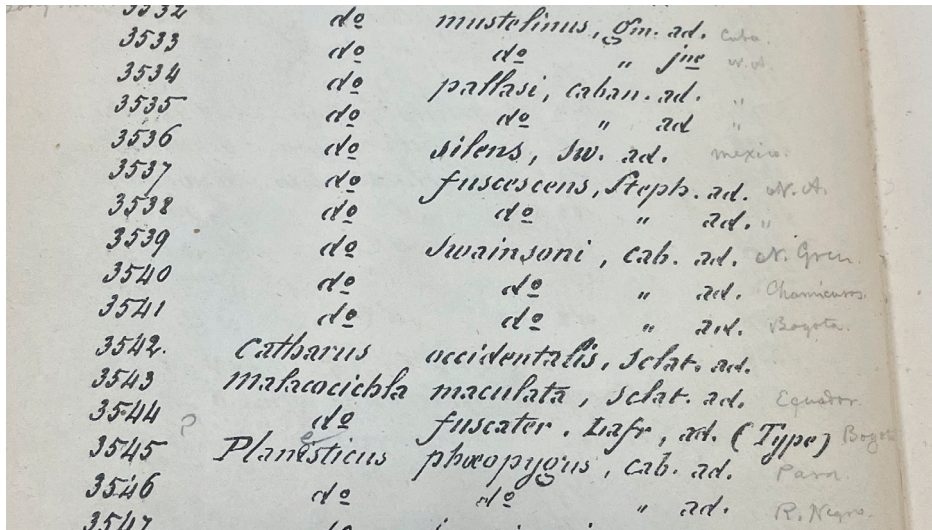 3532 do mustelinus, gm. ad. Cuba.
3533 do do " jne N.A.
3534 do pallasi, caban. ad. "
3535 do do " ad "
3536 do silens, Sw. ad. Mexico.
3537 do fuscescens, Steph. ad. N.A.
3538 do do " ad. "
3539 do Swainsoni, cab. ad. N. Gren.
3540 do do " ad. Chamicuros.
3541 do do " ad. Bogota.
3542. Catharus occidentalis, Sclat. ad.
3543 Malacocichla maculata, Sclat. ad. Equador.
3544 do fuscater. Lafr, ad. (Type) Bogota
3545 ? Planisticus phœopygus, cab. ad. Para.
3546 do do " ad. R. Negro.
3547